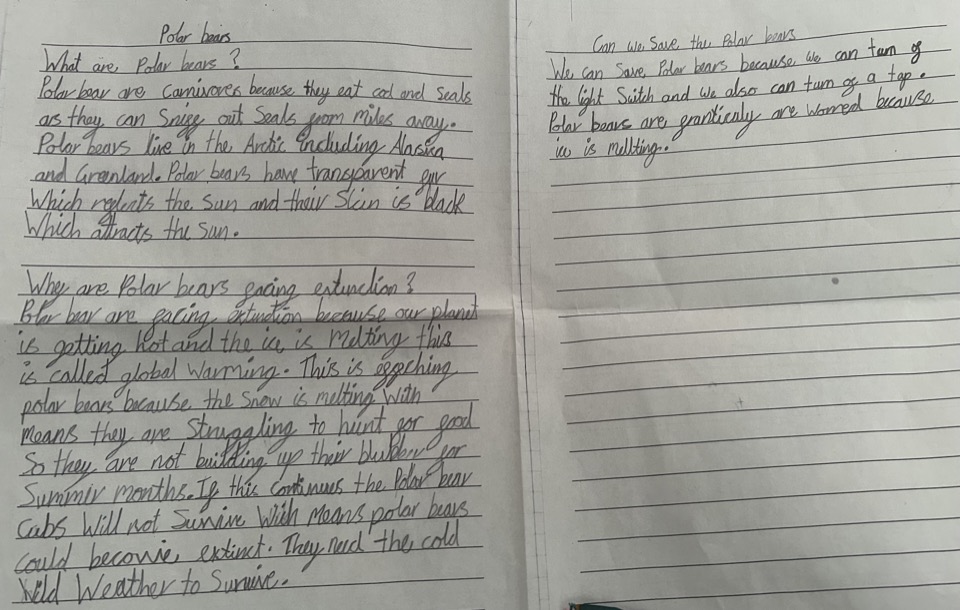 Polar bears
What are Polar bears ?
Polar bear are Carnivores because they eat cod and Seals
as they can Sniff out Seals from miles away.
Polar bears live in the Arctic including Alaska
and Greenland. Polar bears have transparent fur
Which reflects the Sun and their Skin is black
Which attracts the Sun.
Why are Polar bears facing extinction?
Polar bear are facing extinction because our planet
is getting hot and the ice is Melting this
is called global Warming. This is effeching
polar bears because the Snow is melting With
means they are Struggling to hunt for food
So they are not building up their blubber for
Summir months. If this continues the Polar bear
Cubs Will not Survive With Means polar bears
could become extinct. They need the cold
Wild Weather to Survive.
Can we Save the Polar bears
We can Save Polar bears because we can turn of
the light Suitch and we also can turn of a tap.
Polar bears are franticuly are worreed because
ice is mellting.